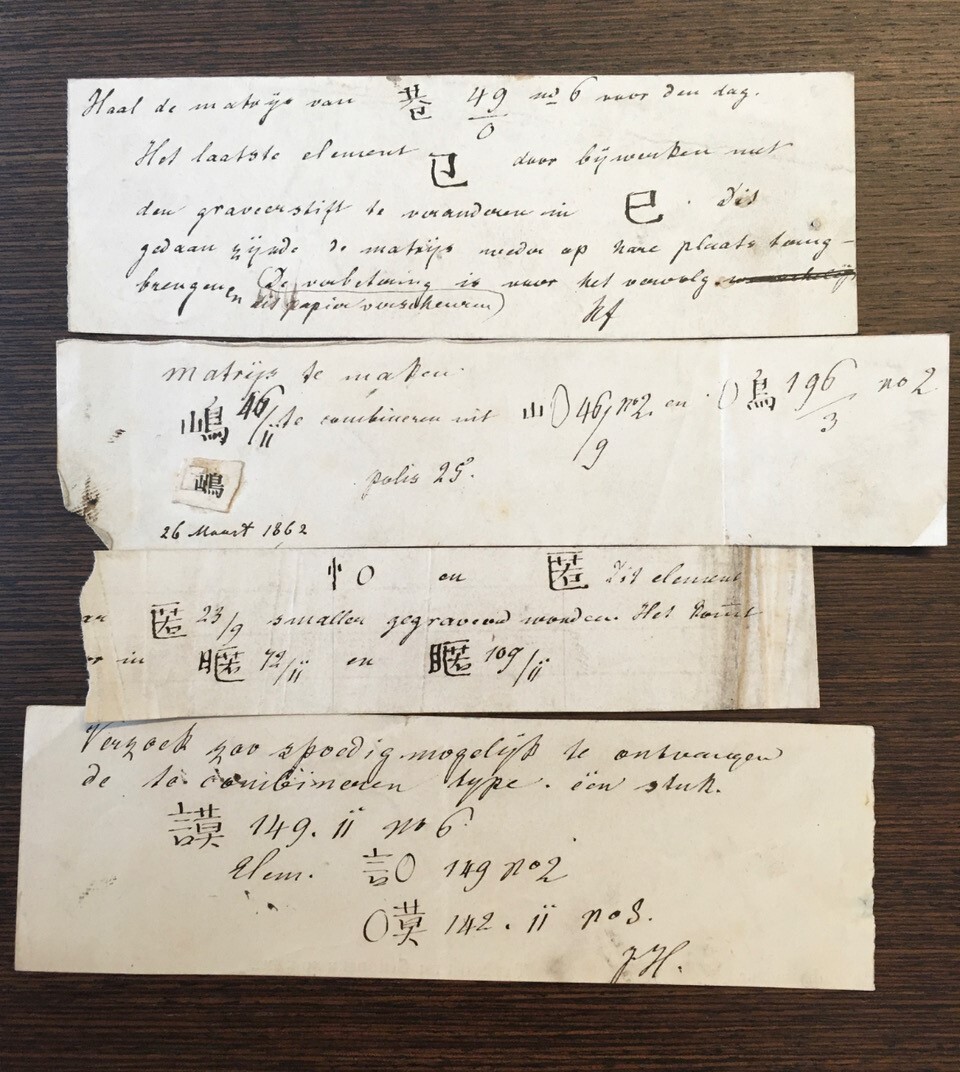 Haal de matrijs van 巷 49/0 no 6 voor den dag.
Het laatste element 㔾 door bijwerken met
den graveerstift te veranderen in 巳. Dit
gedaan zijnde de matrijs weder op hare plaats terug-
brengen en (De verbetering is voor het vervolg
dit papier verscheuren)
Hf
matrijs te maken.
嶋 46/11 te combineren uit 山〇 46/9 no 2. en 〇鳥 196/3 no 2
嶋
26 Maart 1862
忄〇 en 匿 Dit element
匿 23/9 smaller gegraveerd worden. Het komt
in 72/11 en 109/11
Verzoek zoo spoedig mogelijk te ontvangen
de te combineren type. één stuk.
謨 149. 11 no 6.
Elem. 言〇 149 no 2
〇莫 142. 11 no 8.
J H.